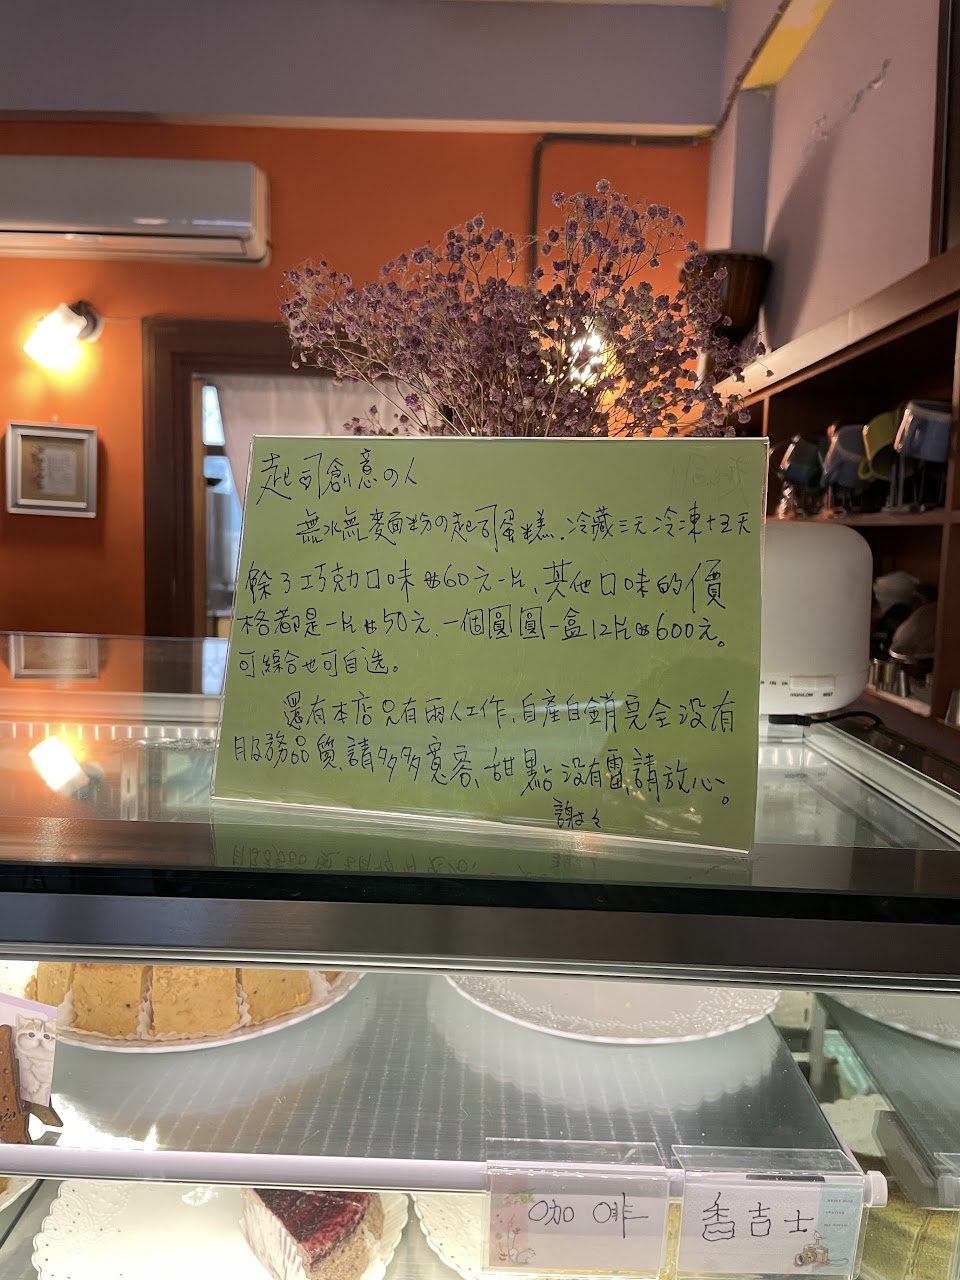 起司創意の人
無水無麵粉の起司蛋糕.冷藏三天冷凍十五天
餘了巧克力口味$60元一片、其他口味的價
格都是一片$50元.一個圓圓一盒12片$600元。
可綜合也可自选。
還有本店只有兩人工作、自產自銷完全没有
服務品質、請多多寬容、甜點没有雷、請放心。
謝々
咖啡
香吉士